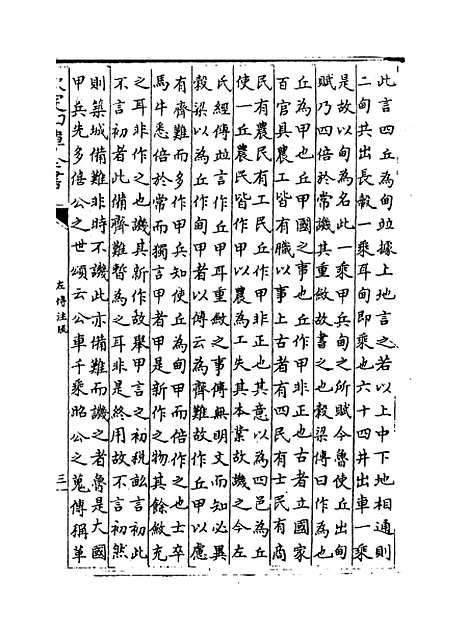 此言四丘為甸並據上地言之若以上中下地相通則
二甸共出長轂一乗耳甸即乗也六十四井出車一乗
是故以甸為名此一乗甲兵甸之所賦今魯使丘出甸
賦乃四倍於常譏其重斂故書之也穀梁傳曰作為也
丘為甲也丘甲國之事也丘作甲非正也古者立國家
百官具農工皆有職以事上古者有四民有士民有商
民有農民有工民丘作甲非正也其意以為四邑為丘
使一丘農民皆作甲以農為工失其本業故譏之今左
氏經傳並言作丘甲耳重斂之事傳無明文而知必異
穀梁以為丘作甸甲者以傳云為齊難故作丘甲以慮
有齊難而多作甲兵知使丘為甸甲而倍作之也士卒
馬牛悉倍於常而獨言甲者甲是新作之物其餘斂充
之耳非作之也譏其新作故舉甲言之初税畝言初此
不言初者此備齊難暫為之耳非是終用故不言初然
則築城備難非時不譏此亦備難而譏之者魯是大國
甲兵先多僖公之世頌云公車千乗昭公之蒐傳稱革
欽定四庫全書
左傳注疏
三